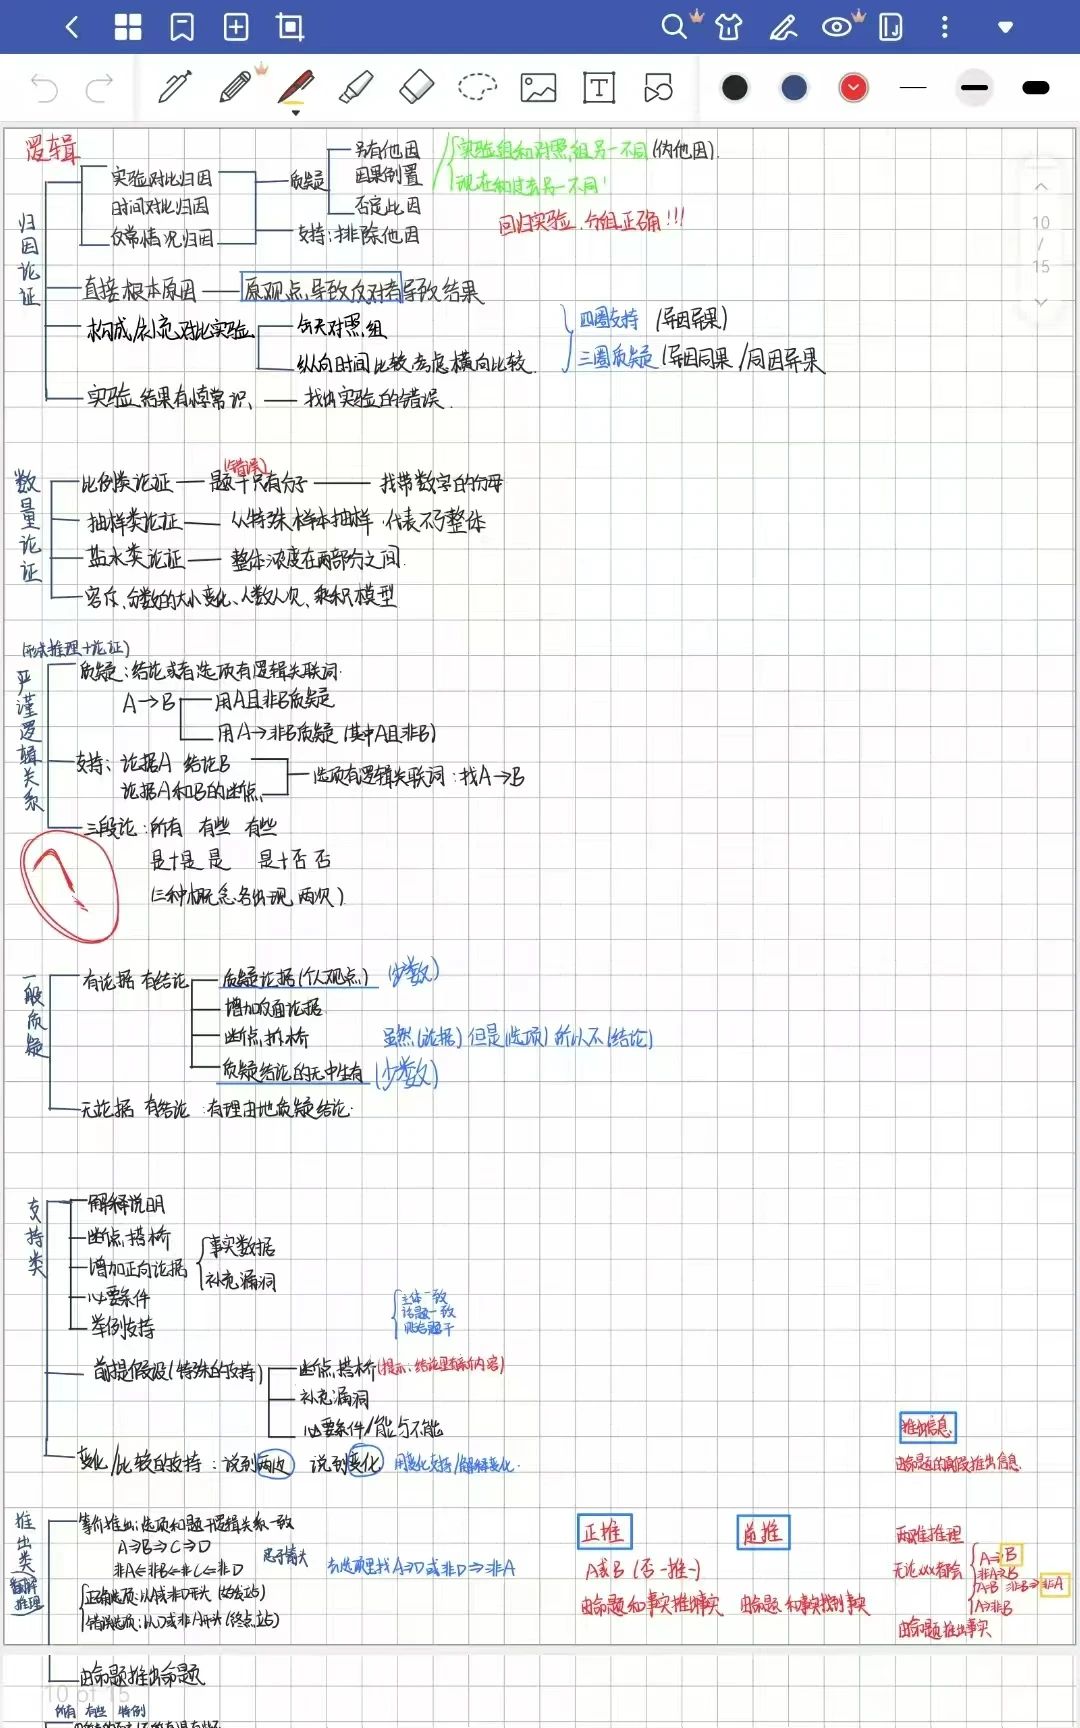 逻辑
归因论证
实验对比归因
时间对比归因
仅常情况归因
质疑
另有他因
因果倒置
否定此因
支持:排除他因
实验组和对照组另一不同(伪他因).
现在和过去另一不同!
回归实验.分组正确!!!
直接根本原因
原观点,导致反对者导致结果
构成/补充对比实验
有无对照组
纵向时间比较,考虑横向比较.
四圈支持 (异因异果)
三圈质疑 (异因同果/同因异果
实验结果有悖常识、
找出实验的错误.
数量论证
比例类论证
(错误)
题干只有分子
找带数字的分母
抽样类论证
从特殊样本抽样 代表不了整体
盐水类论证
整体浓度在两部分之间.
容斥、分数的大小变化、人数人次、乘积模型
(形式推理+论证)
严谨逻辑关系
质疑:结论或者选项有逻辑关联词.
A→B
用A且非B质疑
用A→非B质疑 (其中A且非B)
支持: 论据A 结论B
论据A和B的断点
选项有逻辑关联词:找A→B
三段论:所有 有些 有些
是+是 是 是+否 否
(三种概念各出现两次)
一般质疑
有论据 有结论
质疑论据(个人观点) (少数)
增加反面论据
断点,拆桥
虽然(论据)但是(选项)所以不(结论)
质疑结论的无中生有 (少数)
无论据 有结论:有理由地质疑结论.
支持类
解释说明
断点,搭桥
增加正向论据
事实数据
补充漏洞
必要条件
举例支持
主体一致
话题一致
贴合题干
前提假设(特殊的支持)
断点,搭桥(提示:结论里有新内容)
补充漏洞
必要条件/能与不能
变化/比较的支持:说到两边 说到变化 用变化支持/解释变化.
推出信息
由命题的真假推出信息.
推出类
智解推理
等价推出:选项和题干逻辑关系一致
A⇒B⇒C⇒D
非A⇐非B⇐非C⇐非D
去选项里找A⇒D或非D⇒非A
正确选项:从A或非D开头(始发站)
错误选项:从D或非A开头(终点站)
正推
A或B (否一推一)
由命题和事实推出事实
逆推
由命题和事实找到事实
两难推理
无论xx都会
A⇒B
非A⇒B
A⇒B 非B⇒非A
A⇒非B
由命题推出事实
由命题推出命题
10 of 15
所有 有些 特例
10
/
15